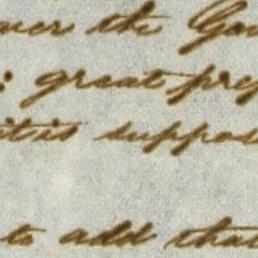 over the Gov
: great prep
it is suppos
to add that